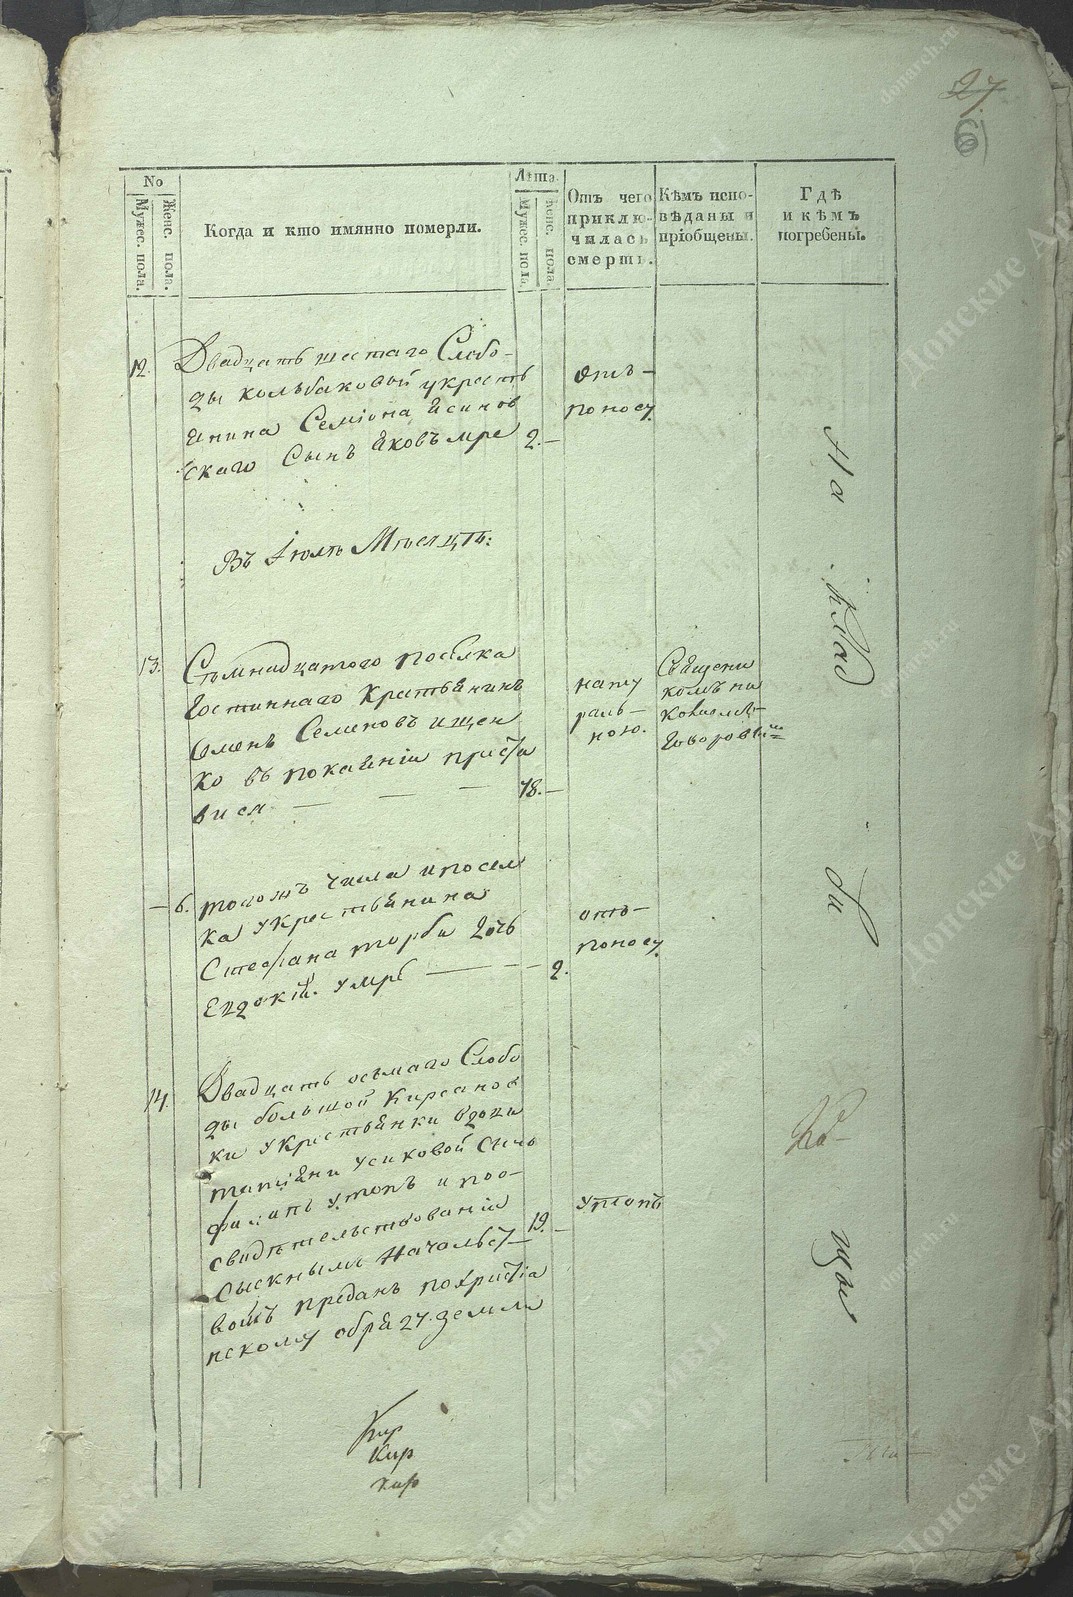 27
6
No
Мужес. пола.
Женс. пола.
Когда и кто имянно померли.
Лѣта.
Мужес. пола.
Женс. пола.
Отъ чего
приклю-
чилась
смерть.
Кѣмъ испо-
вѣданы и
пріобщены.
Гдѣ
и кѣмъ
погребены.
12.
Двадцать шестаго Слобо-
ды колпаковой укресть
янина Семіона Ясинов
скаго Сынъ Яковъ мре
2.-
отъ-
поносу
Въ Іюлѣ Мѣсяцѣ:
13.
Семнадцатого поселка
Крестьянинъ
Семенъ Семеновъ ищен
ко въ покаяніи приста
вися
78.-
нату
раль-
ною.
Священи
комъ ни
- 6. тогожъ числа и посел
ка укрестьянина
Стефана торби дочь
Евдокія. умре
2.
отъ-
поносу
14.
Двадцать осьмаго Слобо
ды большой Кирсанов
ки укрестьянки вдови
Усиковой Сынъ
утопъ и поо-
свидѣтельствованіи
Сыскнымъ Начальст
вомъ преданъ похристіа
нскому 27. земли
19.-
утопъ
На клад
би
щи
Кир
Кир
Кир